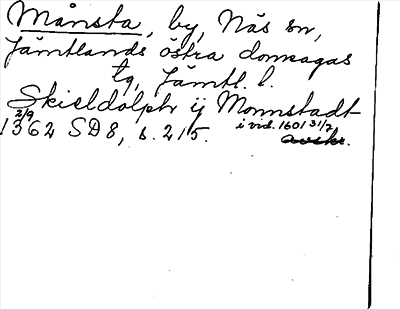 Månsta, by, Näs sn,
Jämtlands östra domsagas
tg, Jämtl. l.
Skieldolph ij Monnstadt
2/9 1362 SD8, s. 215. i vid. 1601 31/7
avskr.